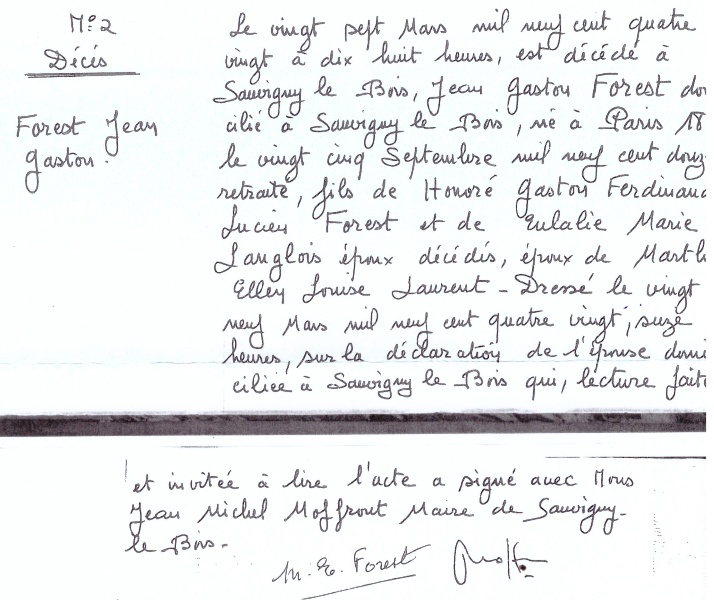 N° 2
Décés
Forest Jean
Gaston.
Le vingt sept Mars mil neuf cent quatre
vingt à dix huit heures, est décédé à
Sauvigny le Bois, Jean Gaston Forest dom
cilié à Sauvigny le Bois, né à Paris 18
le vingt cinq Septembre mil neuf cent douz
retraité, fils de Honoré Gaston Ferdinand
Lucien Forest et de Eulalie Marie
Langlois époux décédés, époux de Marth
Elley Louise Laurent - Dressé le vingt
neuf Mars mil neuf cent quatre vingt, suze
heures, sur la déclaration de l'épouse domi
ciliée à Sauvigny le Bois qui, lecture faite
et invitée à lire l'acte a signé avec Nous
Jean Michel Moffrout Maire de Sauvigny-
le Bois.
M. E. Forest